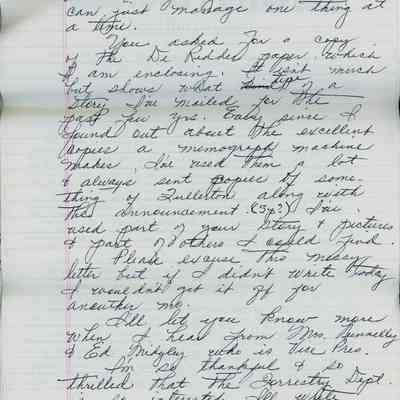 can just manage one thing at
a time.
You asked for a copy
of the De Ridder paper which
I am enclosing. It isn't much
but shows what type of a
story I've mailed for the
past few yrs. Ever since I
found out about the excellent
copies a memograph machine
makes, I've used them a lot
& always sent copies of some-
thing of Fullerton along with
the announcement. (Sp?) I've
used part of your story & pictures
& part of others I could find.
Please excuse this messy
letter but if I didn't write today
I wouldn't get it off for
anouther mo.
I'll let you know more
when I hear from Mrs. Nunnelley
& Ed Midgley who is Vice Pres.
I'm so thankful & so
thrilled that the Forrestry Dept.
is so interested. I'll write